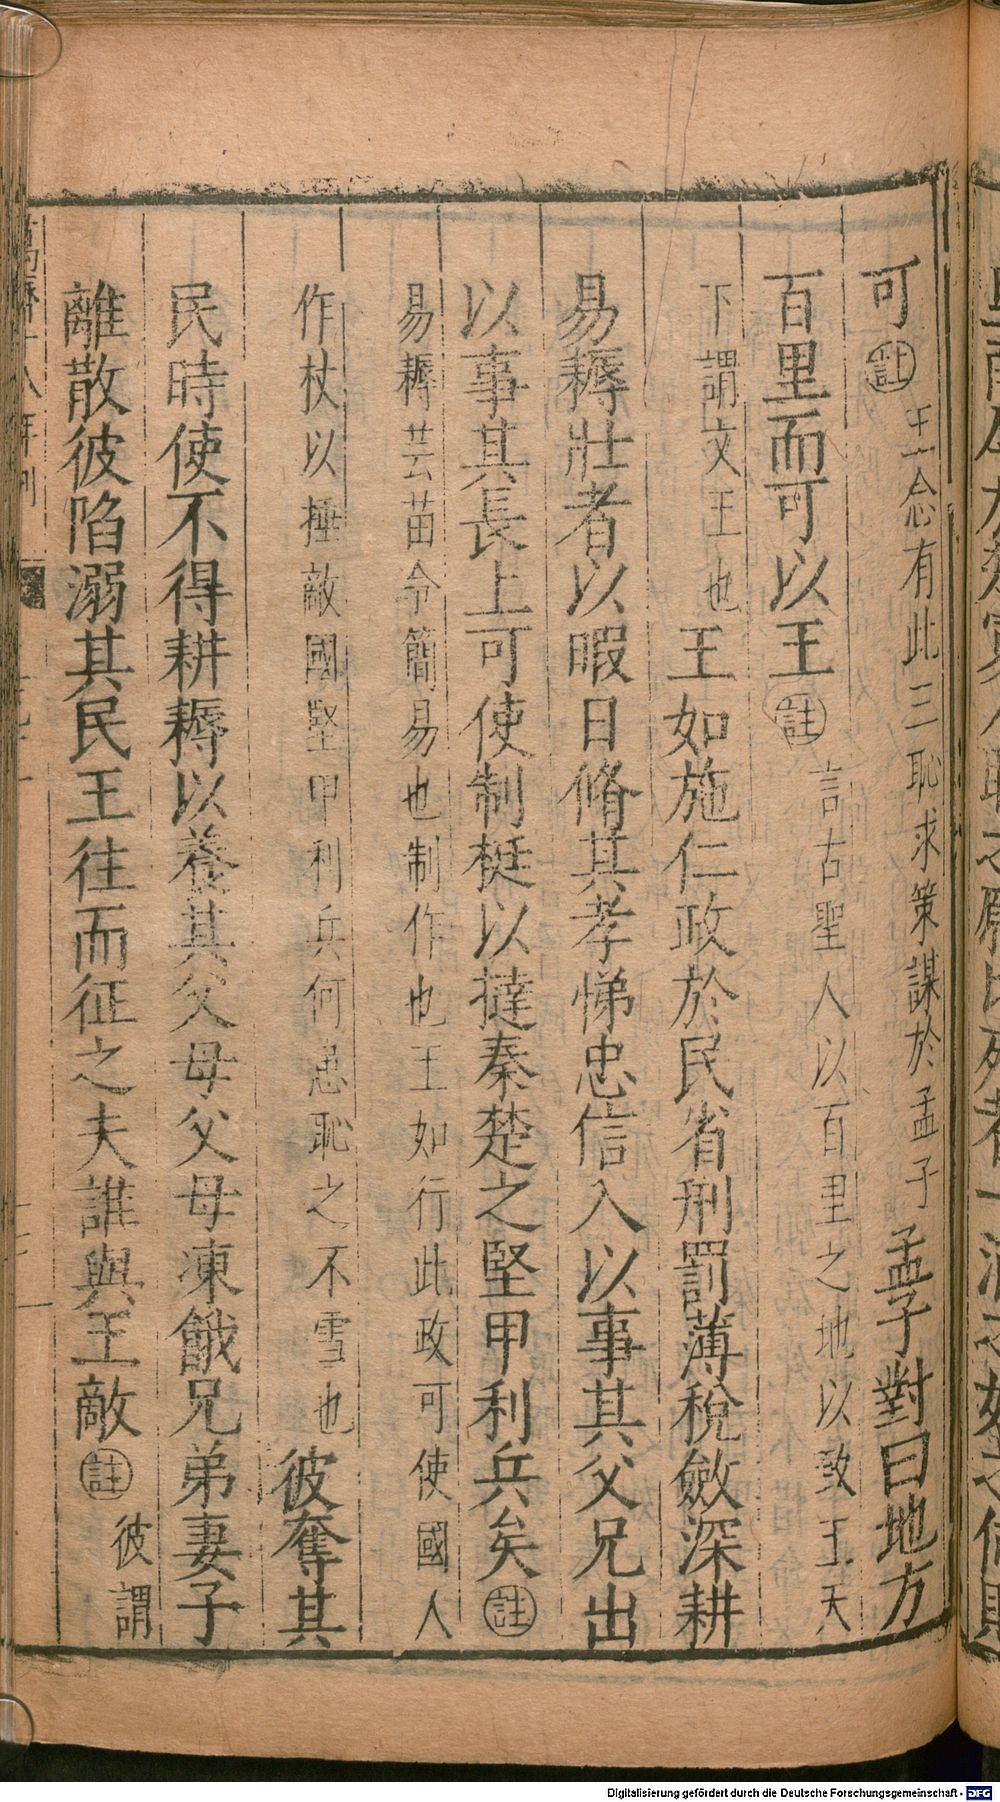 可註王念有此三恥求策謀於孟子孟子對曰地方
百里而可以王註言古聖人以百里之地以致王天
下謂文王也王如施仁政於民省刑罰薄稅斂深耕
易耨壯者以暇日脩其孝悌忠信入以事其父兄出
以事其長上可使制梃以撻秦楚之堅甲利兵矣註
易耨芸苗令簡易也制作也王如行此政可使國人
作杖以捶敵國堅甲利兵何患恥之不雪也彼奪其
民時使不得耕耨以養其父母父母凍餓兄弟妻子
離散彼陷溺其民王往而征之夫誰與王敵註彼謂
Digitalisierung gefördert durch die Deutsche Forschungsgemeinschaft - DFG